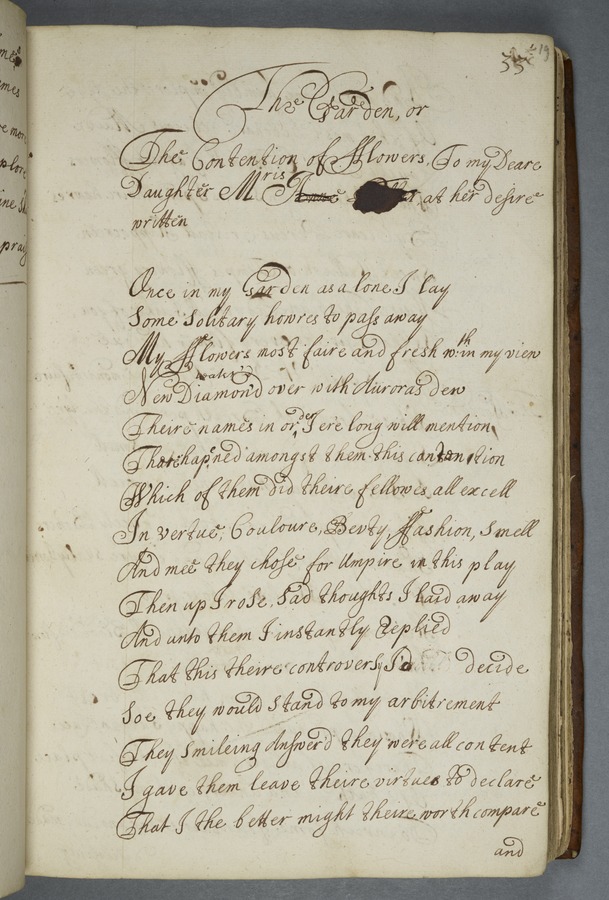 55 19
The Garden, or
The Contention of fflowers, To my Deare
Daughter Mris at her desire
written
Once in my Garden as alone I lay
Some Solitary howres to pass away
My fflowers most faire and fresh wth in my view
New Diamond over with Auroras dew
wak't
Theire names in order I ere long will mention
That hap'ned amongst them this contention
Which of them did theire fellowes all excell
In vertue, Couloure, Bevty, ffashion, Smell
And mee they chose for Umpire in this play
Then up I rose, Sad thoughts I laid away
And unto them I instantly Replied
That this theire controversy I'd decide
Soe they would Stand to my arbitrement
They Smileing Answer'd they were all content
I gave them leave theire virtues to declare
That I the better might theire worth compare
and